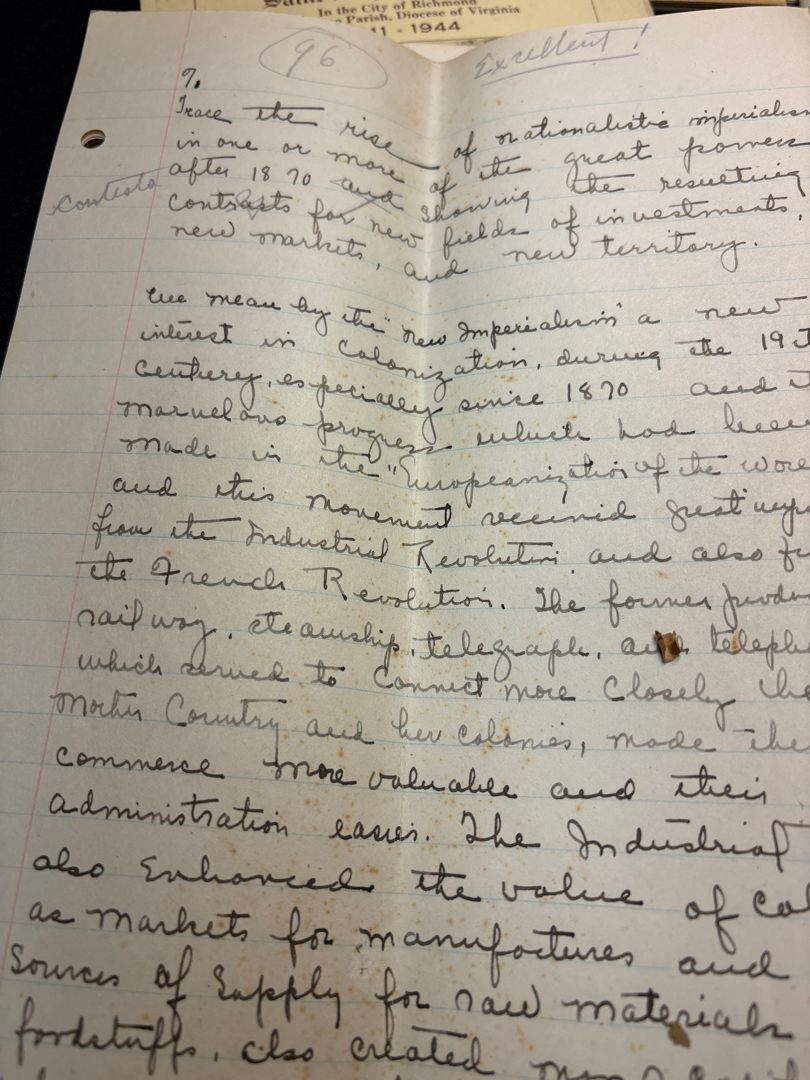 In the City of Richmond
Parish, Diocese of Virginia
11 - 1944
96
Excellent!
9.
Trace the rise of nationalistic imperialism
in one or more of the great powers
after 1870 and showing the resulting
contests
contrasts for new fields of investments,
new markets, and new territory.
We mean by the "new Imperialism" a new
interest in Colonization, during the 19
Century, especially since 1870 and
marvelous progress which had been
made in the "Europeanization of the
and this movement received great
from the Industrial Revolution and also
the French Revolution. The former
railway, steamship, telegraph, and
which served to connect more closely the
Mother Country and her colonies, made
commerce more valuable and their
administration easier. The Industrial
also Enhanced the value of
as markets for manufactures and
Sources of Supply for raw materials
foodstuffs, also created